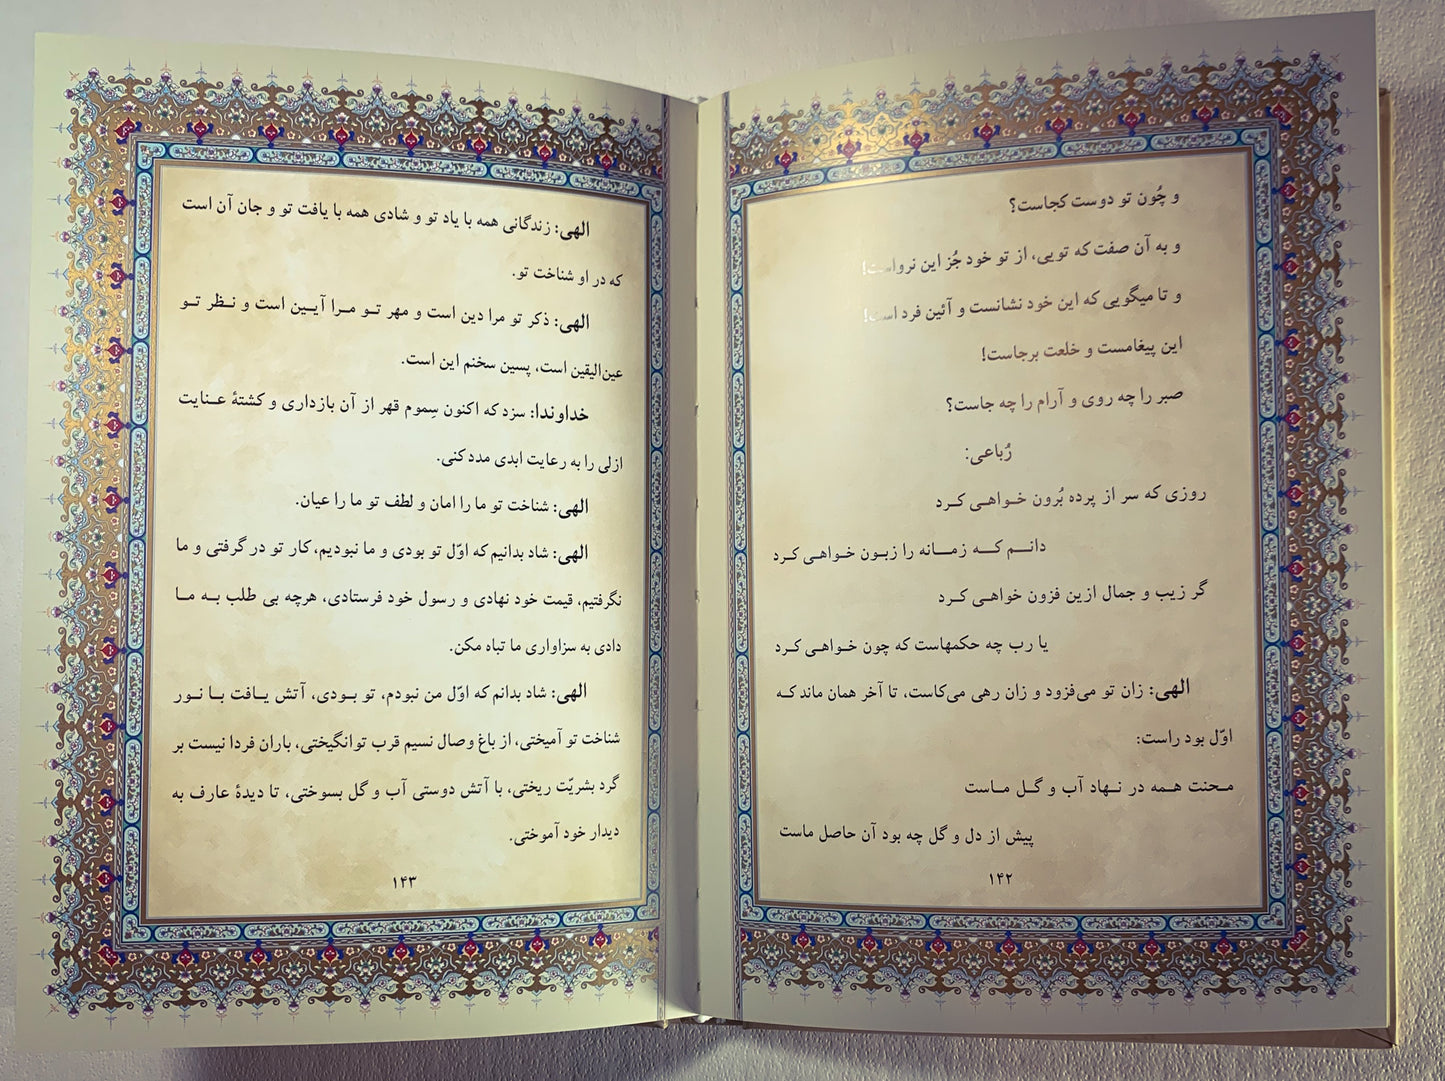 و چُون تو دوست کجاست؟
و به آن صفت که تویی، از تو خود جُز این نرواست!
و تا میگویی که این خود نشانست و آئین فرد است!
این پیغامست و خلعت برجاست!
صبر را چه روی و آرام را چه جاست؟
رُباعی:
روزی که سر از پرده بُرون خواهی کرد
دانم که زمانه را زبون خواهی کرد
گر زیب و جمال ازین فزون خواهی کرد
یا رب چه حکمهاست که چون خواهی کرد
الهی: زان تو می‌فزود و زان رهی می‌کاست، تا آخر همان ماند که
اوّل بود راست:
محنت همه در نهاد آب و گل ماست
پیش از دل و گل چه بود آن حاصل ماست
۱۴۲
الهی: زندگانی همه با یاد تو و شادی همه با یافت تو و جان آن است
که در او شناخت تو.
الهی: ذکر تو مرا دین است و مهر تو مرا آیین است و نظر تو
عین‌الیقین است، پسین سخنم این است.
خداوندا: سزد که اکنون سِموم قهر از آن بازداری و کشتهٔ عنایت
ازلی را به رعایت ابدی مدد کنی.
الهی: شناخت تو ما را امان و لطف تو ما را عیان.
الهی: شاد بدانیم که اوّل تو بودی و ما نبودیم، کار تو در گرفتی و ما
نگرفتیم، قیمت خود نهادی و رسول خود فرستادی، هرچه بی طلب به ما
دادی به سزاواری ما تباه مکن.
الهی: شاد بدانم که اوّل من نبودم، تو بودی، آتش یافت با نور
شناخت تو آمیختی، از باغ وصال نسیم قرب توانگیختی، باران فردا نیست بر
گرد بشریّت ریختی، با آتش دوستی آب و گل بسوختی، تا دیدهٔ عارف به
دیدار خود آموختی.
۱۴۳